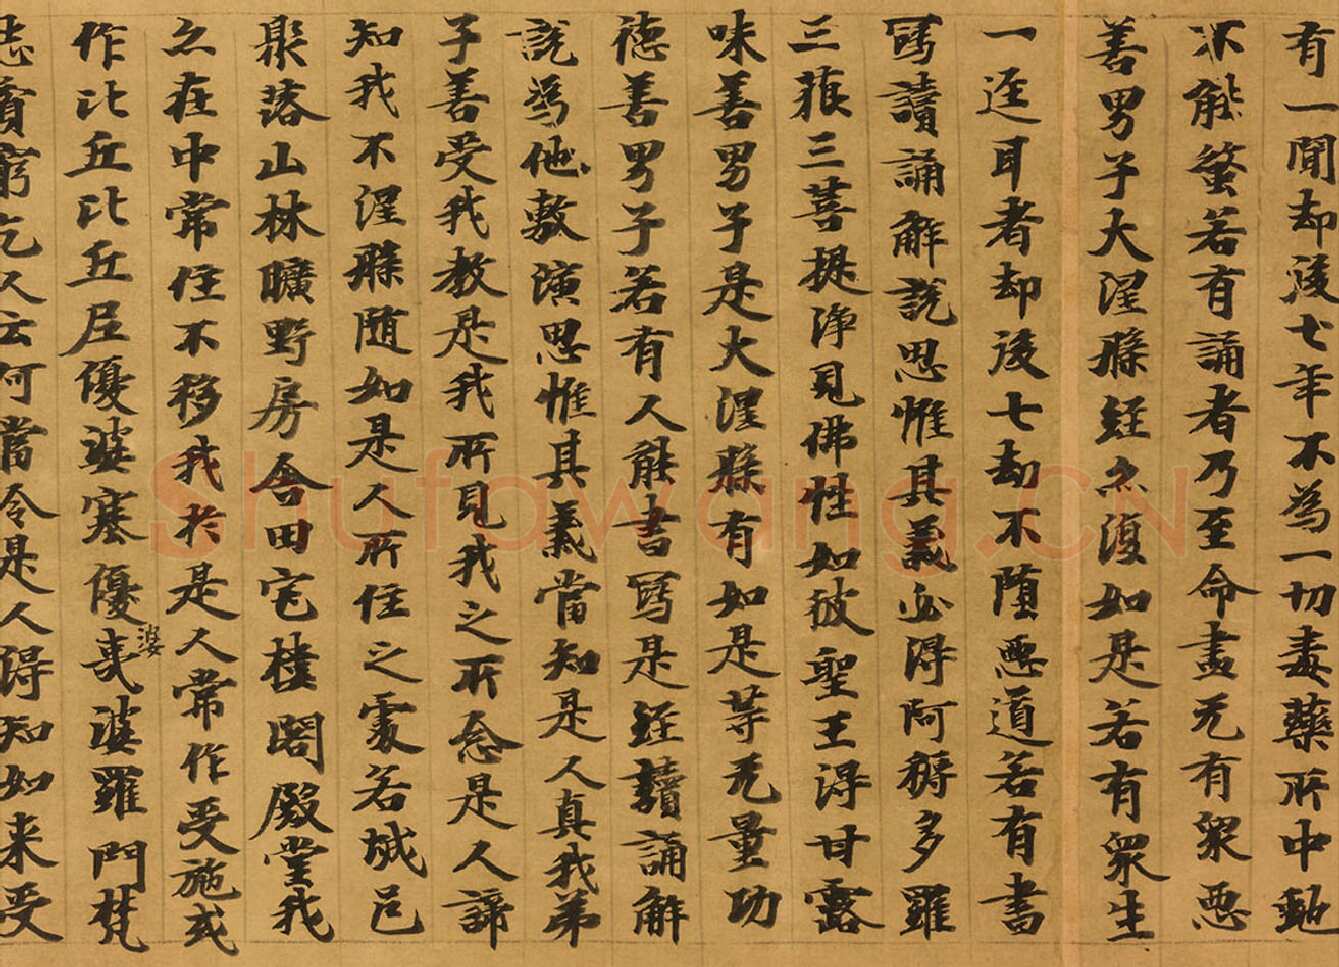 有一聞却後七年不為一切毒藥所中虵
不能螫若有誦者乃至命盡无有衆惡
善男子大涅槃經亦復如是若有衆生
一逕耳者却後七劫不墮惡道若有書
寫讀誦解說思惟其義必得阿耨多羅
三藐三菩提淨見佛性如彼聖王得甘露
味善男子是大涅槃有如是等无量功
德善男子若有人能書寫是經讀誦解
說為他敷演思惟其義當知是人真我弟
子善受我教是我所見我之所念是人諦
知我不涅槃随如是人所住之處若城邑
聚落山林曠野房舍田宅樓閣殿堂我
亦在中常住不移我於是人常作受施或
作比丘比丘尼優婆塞優婆夷婆羅門梵
志貧窮乞人云何當令是人得知如来受
Shufawang.CN